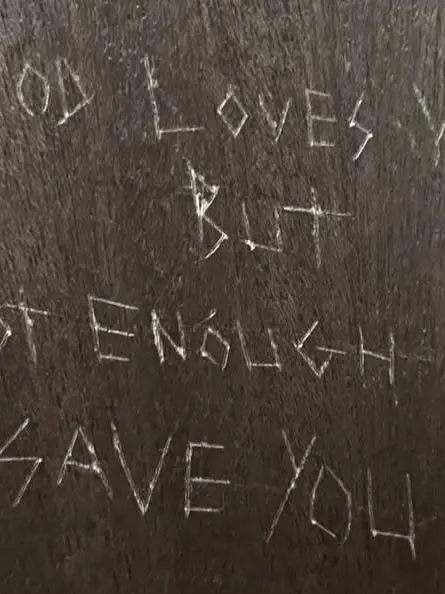 OD LOVES Y
BUT
OT ENOUGH
SAVE YOU